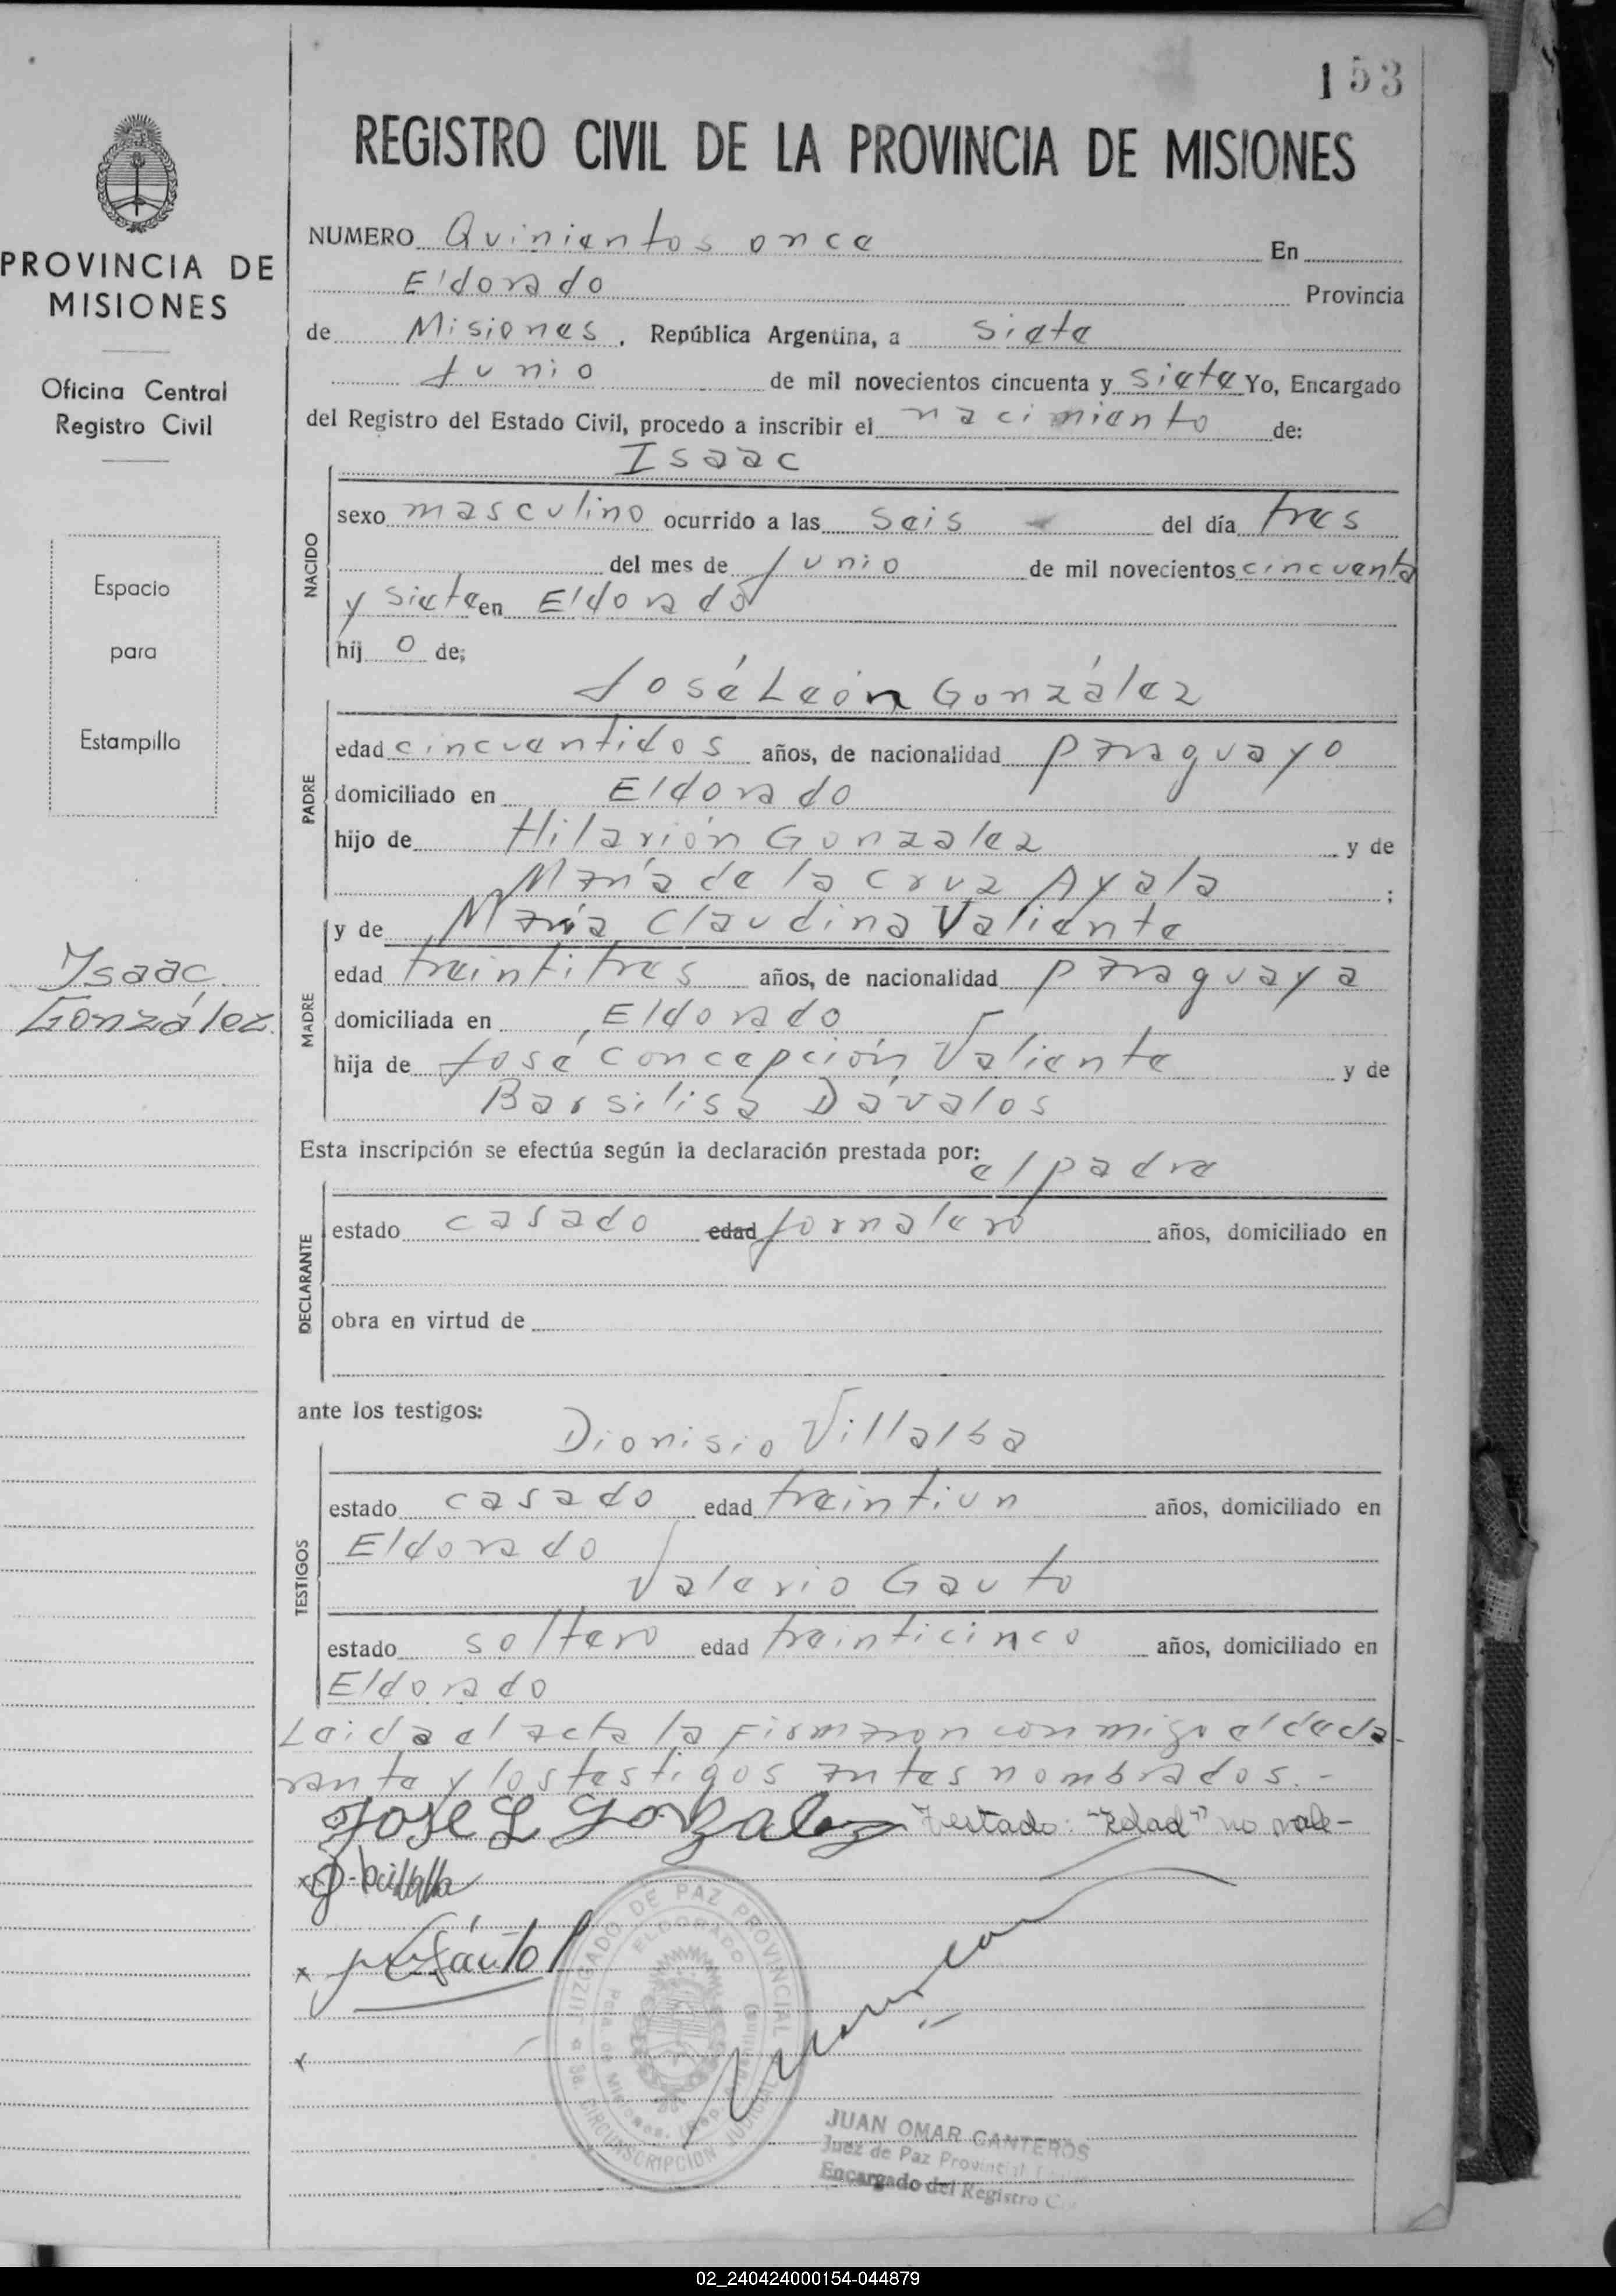 153
REGISTRO CIVIL DE LA PROVINCIA DE MISIONES
PROVINCIA DE
MISIONES
Oficina Central
Registro Civil
Espacio
para
Estampilla
Isaac
González
NUMERO Quinientos once En
Eldorado Provincia
de Misiones, República Argentina, a siete
Junio de mil novecientos cincuenta y siete Yo, Encargado
del Registro del Estado Civil, procedo a inscribir el nacimiento de:
Isaac
NACIDO
sexo masculino ocurrido a las seis del día tres
del mes de Junio de mil novecientos cincuenta
y siete en Eldorado
hij o de;
José León González
PADRE
edad cincuentidos años, de nacionalidad paraguayo
domiciliado en Eldorado
hijo de Hilarión Gonzalez y de
María de la Cruz Ayala ;
y de María Claudina Valiente
MADRE
edad treintitres años, de nacionalidad paraguaya
domiciliada en Eldorado
hija de José Concepción Valiente y de
Barsilisa Dávalos
Esta inscripción se efectúa según la declaración prestada por:
el padre
DECLARANTE
estado casado edad jornalero años, domiciliado en
obra en virtud de
ante los testigos:
Dionisio Villalba
TESTIGOS
estado casado edad treintiun años, domiciliado en
Eldorado
Valerio Gauto
estado soltero edad treinticinco años, domiciliado en
Eldorado
Leida el acta la firmaron conmigo el decla-
rante y los testigos antes nombrados.-
Jose L Gonzalez Testado: "Edad" no vale-
JUZGADO DE PAZ PROVINCIAL
ELDORADO
CIRCUNSCRIPCION JUDICIAL
JUAN OMAR CANTEROS
Juez de Paz Provincial
Encargado del Registro C
02_240424000154-044879